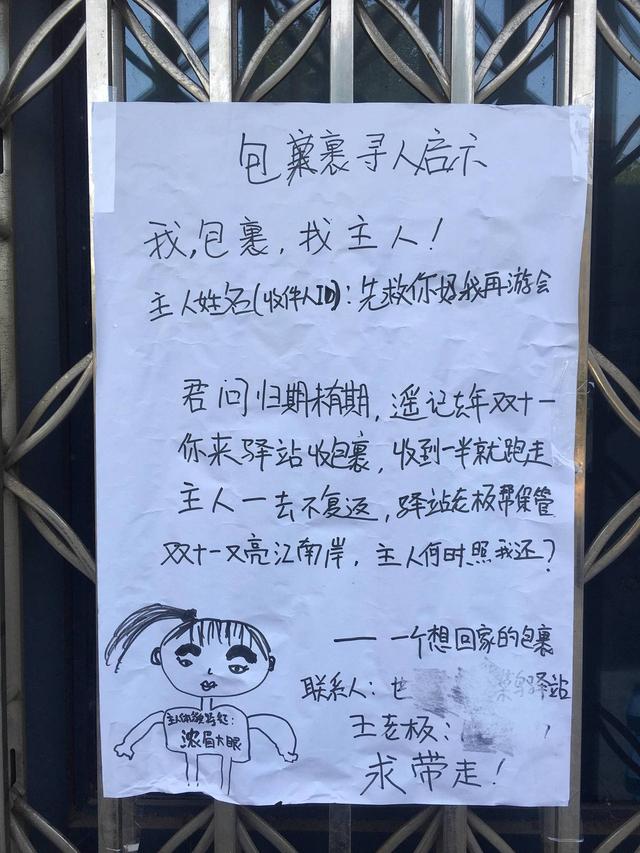 包裹寻人启示
我,包裹,找主人!
主人姓名(收件人ID):先救你妈我再游会
君问归期未有期,遥记去年双十一
你来驿站收包裹,收到一半就跑走
主人一去不复返,驿站老板帮保管
双十一又亮江南岸,主人何时照我还?
——一个想回家的包裹
联系人: 驿站
王老板:
求带走!
主人你
浓眉大眼